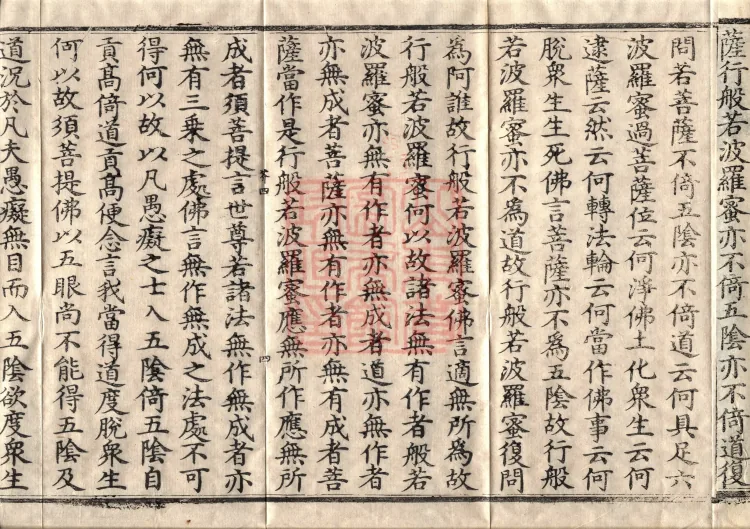 薩行般若波羅蜜亦不倚五陰亦不倚道復
問若菩薩不倚五陰亦不倚道云何具足六
波羅蜜過菩薩位云何淨佛土化衆生云何
逮薩云然云何轉法輪云何當作佛事云何
脫衆生生死佛言菩薩亦不爲五陰故行般
若波羅蜜亦不爲道故行般若波羅蜜復問
爲阿誰故行般若波羅蜜佛言適無所爲故
行般若波羅蜜何以故諸法無有作者般若
波羅蜜亦無有作者亦無成者道亦無作者
亦無成者菩薩亦無有作者亦無有成者菩
薩當作是行般若波羅蜜應無所作應無所
成者須菩提言世尊若諸法無作無成者亦
無有三乘之處佛言無作無成之法處不可
得何以故以凡愚癡之士入五陰倚五陰自
貢高倚道貢高便念言我當得道度脫衆生
何以故須菩提佛以五眼尚不能得五陰及
道況於凡夫愚癡無目而入五陰欲度衆生